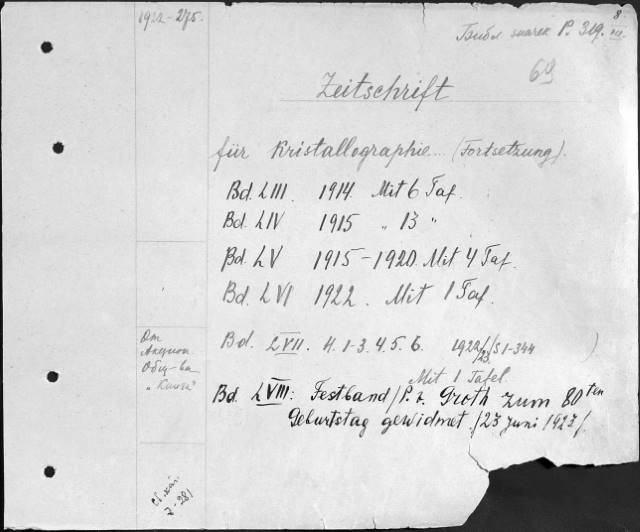 1922-275.
Библ. значек Р. 319. 8
III.
69
Zeitschrift
für Kristallographie... (Fortsetzung).
Bd. LIII. 1914. Mit 6 Taf.
Bd. LIV 1915 „ 13 „
Bd. LV 1915-1920. Mit 4 Taf.
Bd. LVI 1922. Mit 1 Taf.
Bd. LVII. H. 1-3. 4. 5. 6. 1922/ /S 1-344 )
23.
Mit 1 Tafel.
От
Акцион.
Общ-ва
„Книга"
Bd. LVIII: Festband /P. v. Groth zum 80 ten
Geburtstag gewidmet. /23 Juni 1923/.
7-281